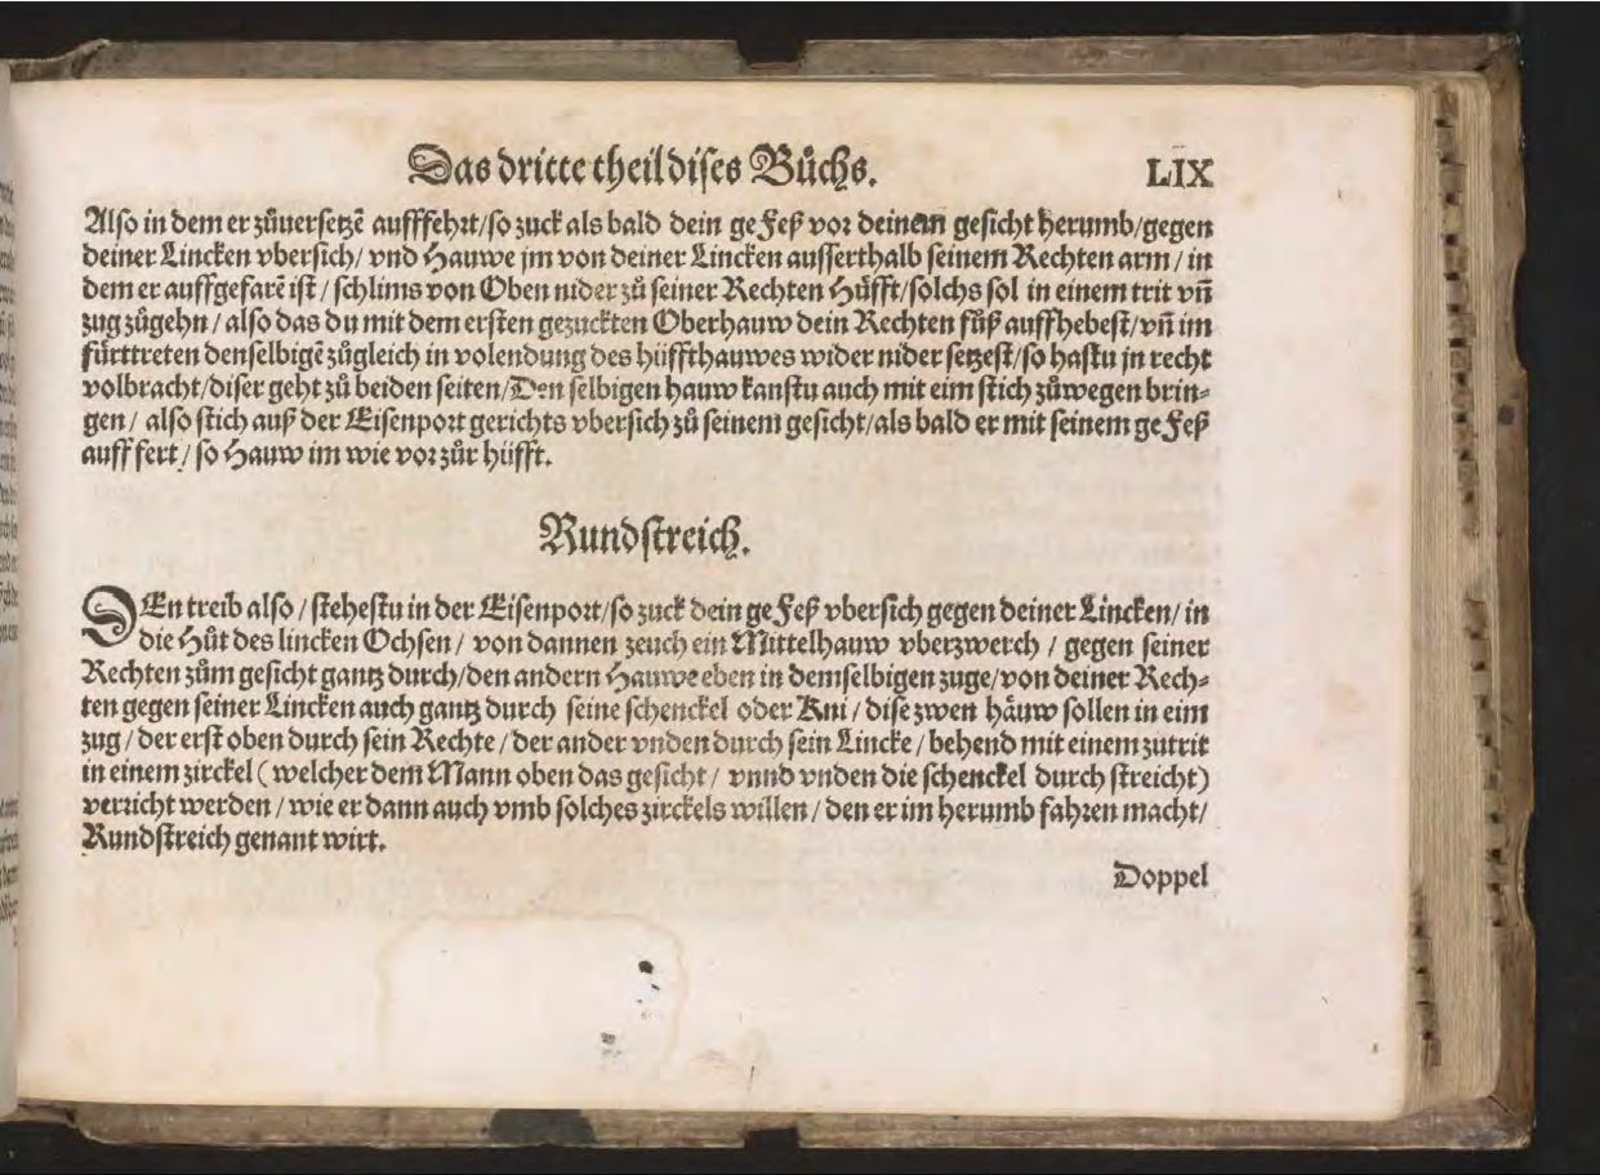 Das dritte theil dises Bůchs. LIX
Also in dem er zůuersetzẽ aufffehrt/so zuck als bald dein gefeß vor deinem gesicht herumb/gegen
deiner Lincken vbersich/ vnd Hauwe jm von deiner Lincken ausserthalb seinem Rechten arm / in
dem er auffgefarẽ ist / schlims von Oben nider zů seiner Rechten Hüfft/solchs sol in einem trit vñ
zug zůgehn / also das du mit dem ersten gezuckten Oberhauw dein Rechten fůß auffhebest/vñ im
fürttreten denselbigẽ zůgleich in volendung des hüffthauwes wider nider setzest/so hastu jn recht
volbracht/diser geht zů beiden seiten/Den selbigen hauw kanstu auch mit eim stich zůwegen brin-
gen / also stich auß der Eisenport gerichts vbersich zů seinem gesicht/als bald er mit seinem gefeß
auff fert / so Hauw im wie vor zůr hüfft.
Rundstreich.
DEn treib also / stehestu in der Eisenport/so zuck dein gefeß vbersich gegen deiner Lincken/ in
die Hůt des lincken Ochsen / von dannen zeuch ein Mittelhauw vberzwerch / gegen seiner
Rechten zům gesicht gantz durch/den andern Hauwe eben in demselbigen zuge/von deiner Rech-
ten gegen seiner Lincken auch gantz durch seine schenckel oder Kni / dise zwen häuw sollen in eim
zug / der erst oben durch sein Rechte / der ander vnden durch sein Lincke / behend mit einem zutrit
in einem zirckel ( welcher dem Mann oben das gesicht / vnnd vnden die schenckel durch streicht)
verricht werden / wie er dann auch vmb solches zirckels willen / den er im herumb fahren macht/
Rundstreich genant wirt.
Doppel